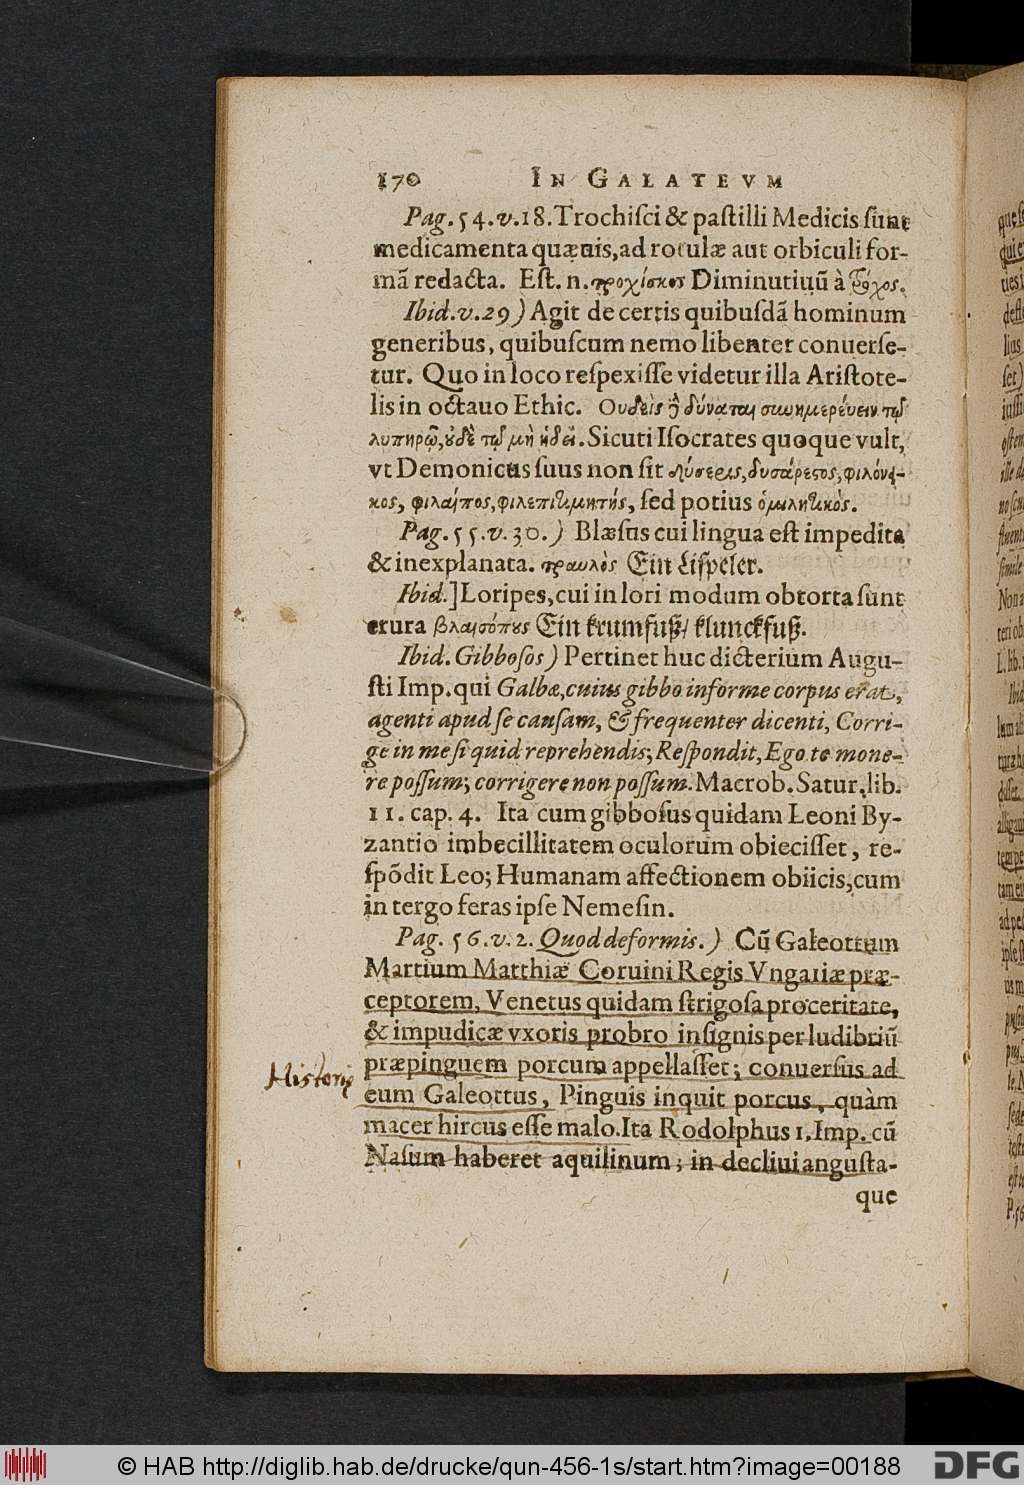 170 IN GALATEVM
Pag. 54. v. 18. Trochiſci & paſtilli Medicis ſunt
medicamenta quæuis, ad rotulæ aut orbiculi for-
mã redacta. Eſt. n. τροχίσκος Diminutiuũ à τρόχος.
Ibid. v. 29) Agit de certis quibuſdã hominum
generibus, quibuſcum nemo libenter conuerſe-
tur. Quo in loco reſpexiſſe videtur illa Ariſtote-
lis in octauo Ethic. Ουδεὶς δύναται συνημερέυειν τῷ
λυπηρῷ, ȣδὲ τῷ μὴ ἡδεῖ. Sicuti Iſocrates quoque vult,
vt Demonicus ſuus non ſit δύσερις, δυσάρεςος, φιλόνι-
κος, φιλαίτιος, φιλεπιτιμητής, ſed potius ὁμιλητικὸς.
Pag. 55. v. 30.) Blæſus cui lingua eſt impedita
& inexplanata. τραυλὸς Ein Liſpeler.
Ibid.] Loripes, cui in lori modum obtorta ſunt
crura βλαισόπȣς Ein krumfuß/ klunckfuß.
Ibid. Gibboſos) Pertinet huc dicterium Augu-
ſti Imp. qui Galbæ, cuius gibbo informe corpus erat,
agenti apud ſe cauſam, & frequenter dicenti, Corri-
ge in me ſi quid reprehendis; Reſpondit, Ego te mone-
re poſſum; corrigere non poſſum. Macrob. Satur. lib.
11. cap. 4. Ita cum gibboſus quidam Leoni By-
zantio imbecillitatem oculorum obieciſſet, re-
ſpõdit Leo; Humanam affectionem obiicis, cum
in tergo feras ipſe Nemeſin.
Pag. 56. v. 2. Quod deformis.) Cũ Galeottum
Martium Matthiæ Coruini Regis Vngariæ præ-
ceptorem, Venetus quidam ſtrigoſa proceritate,
& impudicæ vxoris probro inſignis per ludibriũ
præpinguem porcum appellaſſet; conuerſus ad
eum Galeottus, Pinguis inquit porcus, quàm
macer hircus eſſe malo. Ita Rodolphus 1. Imp. cũ
Naſum haberet aquilinum; in decliui anguſta-
que
© HAB http://diglib.hab.de/drucke/qun-456-1s/start.htm?image=00188
DFG